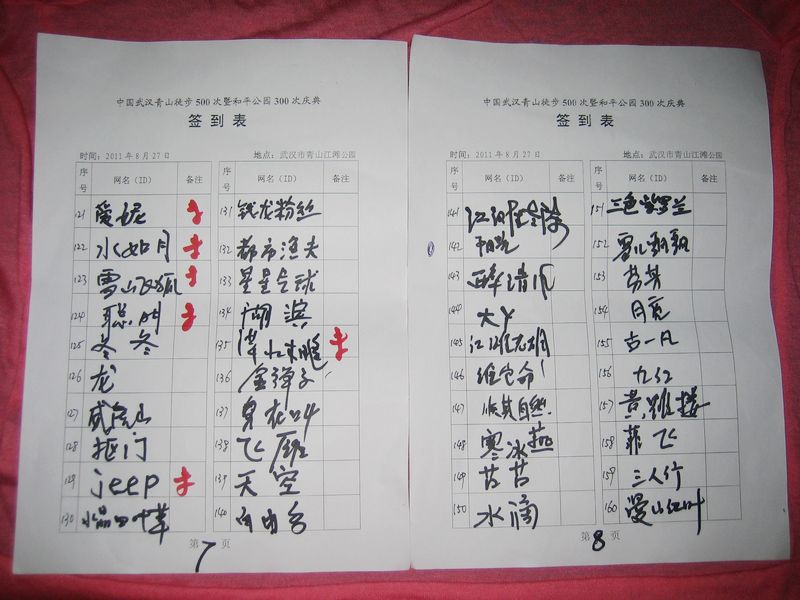 中国武汉青山徒步500次暨和平公园300次庆典
签到表
时间：2011年8月27日 地点：武汉市青山江滩公园
序号 网名（ID） 备注 序号 网名（ID） 备注
121 爱妮 131 钱龙粉丝
122 水如月 132 都市渔夫
123 雪山飞狐 133 星星气球
124 聪明 134 湖滨
125 冬冬 135
126 龙 136 金弹子
127 威虎山 137
128 抠门 138 飞
129 jeep 139 天空
130 140 自由鸟
第7页
中国武汉青山徒步500次暨和平公园300次庆典
签到表
时间：2011年8月27日 地点：武汉市青山江滩公园
序号 网名（ID） 备注 序号 网名（ID） 备注
141 151 三色紫罗兰
142 阳光 152 雪儿飘飘
143 醉清风 153 芳芳
144 大 154 月亮
145 155 古一凡
146 156 九红
147 顺其自然 157 黄鹤楼
148 寒冰燕 158 菲飞
149 苦苦 159 三人行
150 水滴 160 漫山红叶
第8页